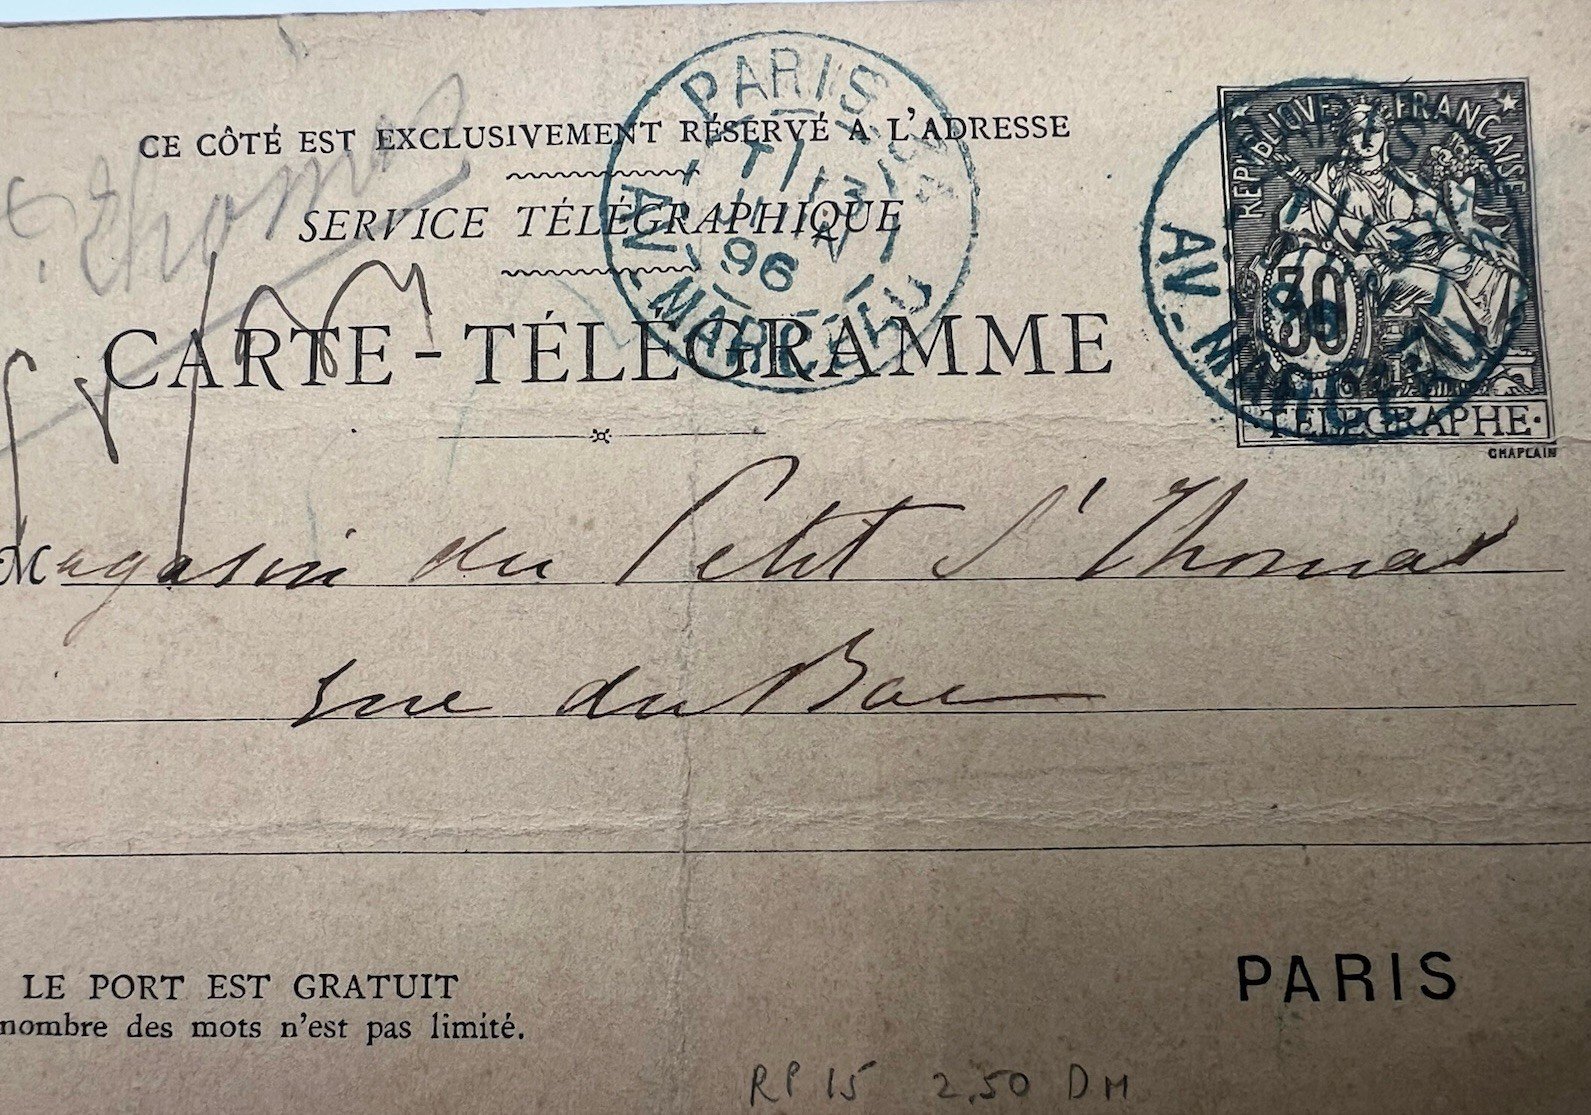 CE CÔTÉ EST EXCLUSIVEMENT RÉSERVÉ A L'ADRESSE
SERVICE TÉLÉGRAPHIQUE
CARTE-TÉLÉGRAMME
Thomas
PARIS
96
AV-MARCEAU
REPUBLIQUE FRANÇAISE
30
TÉLÉGRAPHE
CHAPLAIN
AV-MARCEAU
Magasin du Petit St Thomas
rue du Bac
LE PORT EST GRATUIT
nombre des mots n'est pas limité.
PARIS
RP 15 2,50 DM